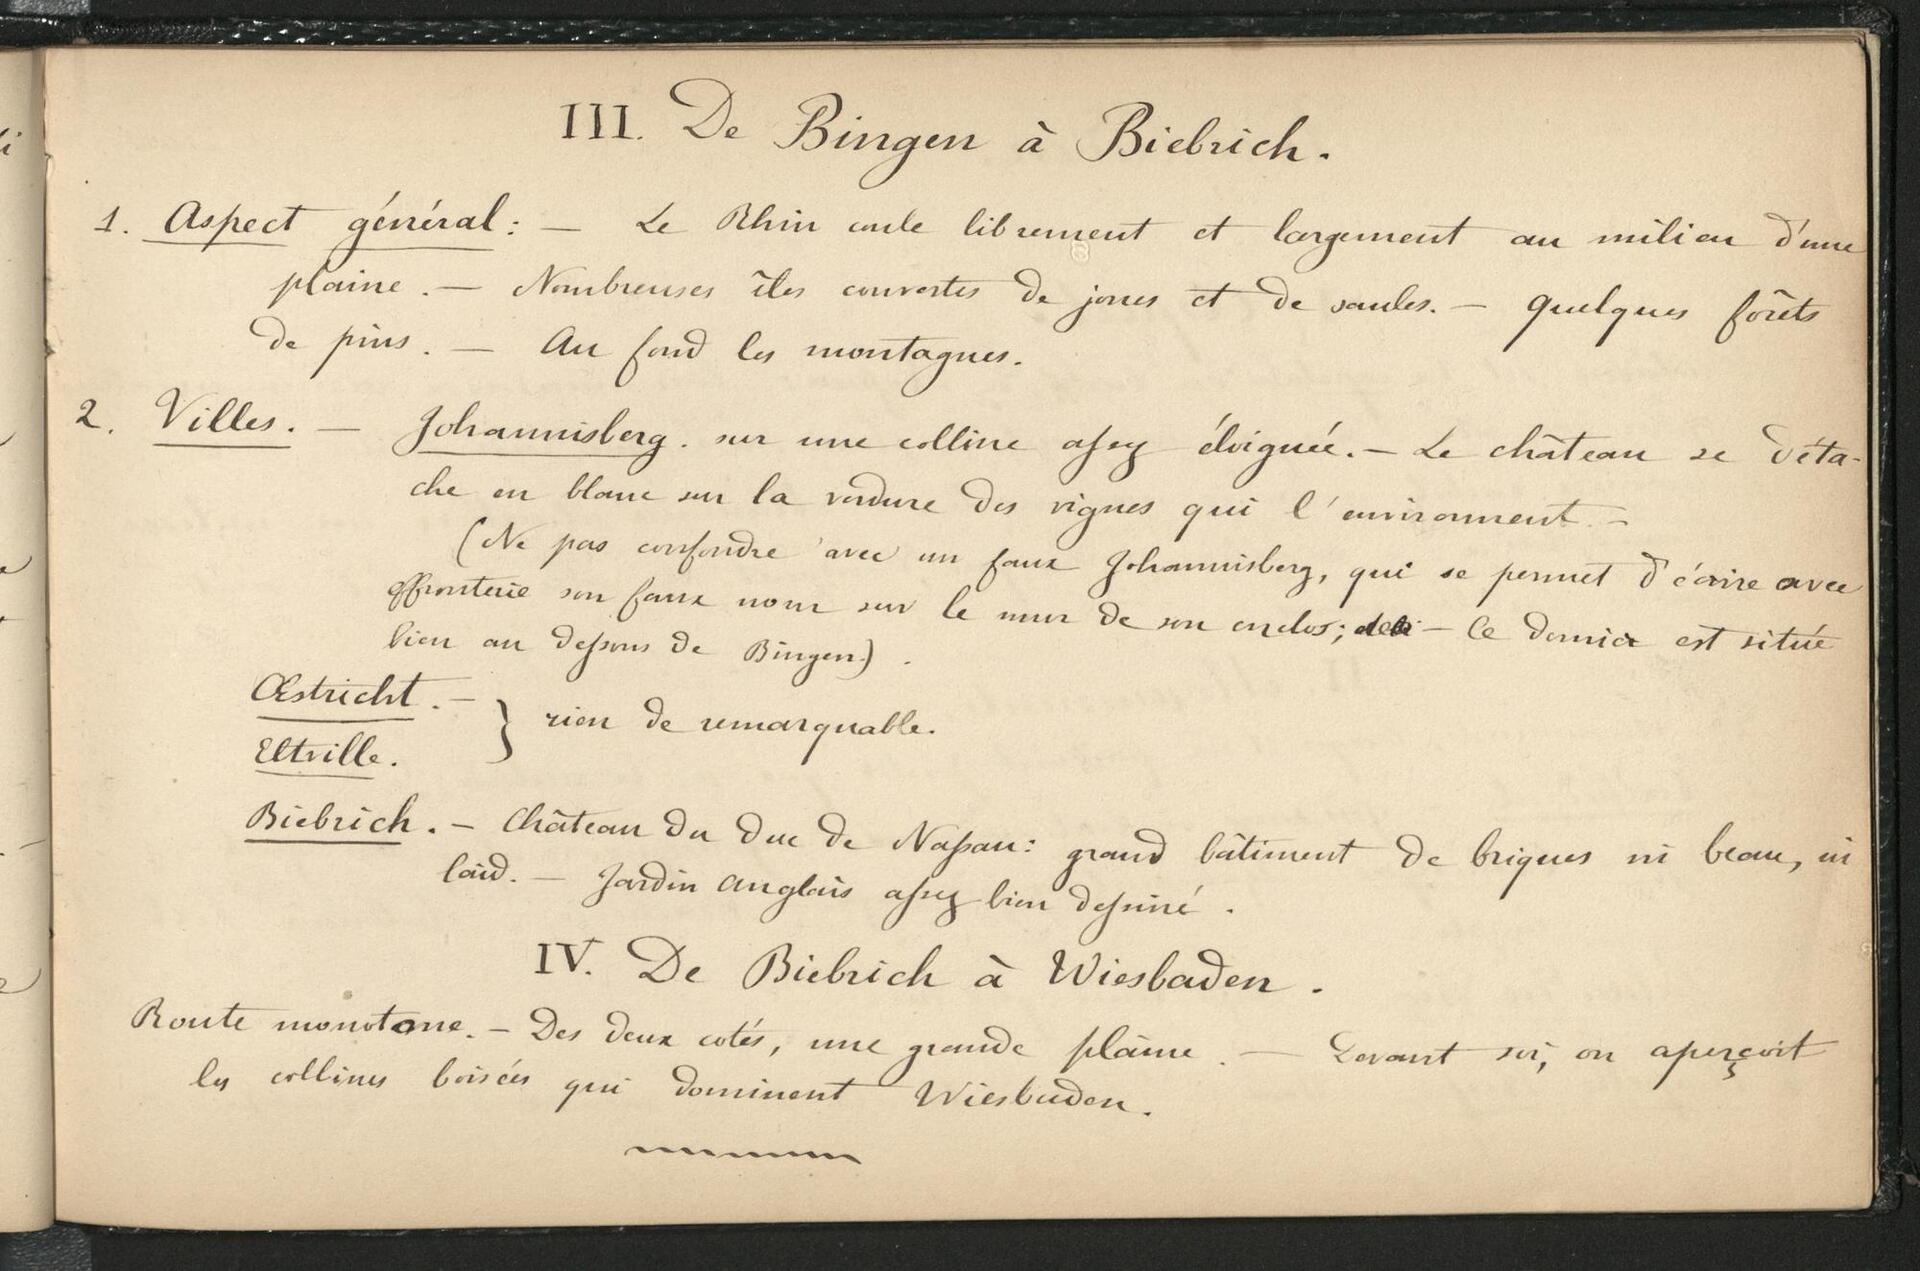 III. De Bingen à Biebrich.
1. Aspect général : — Le Rhin coule librement et largement au milieu d'une
plaine. — Nombreuses îles couvertes de joncs et de saules. — Quelques forêts
de pins. — Au fond les montagnes.
2. Villes. — Johannisberg. sur une colline assez éloignée. — Le château se déta-
che en blanc sur la verdure des vignes qui l'environnent. —
(Ne pas confondre avec un faux Johannisberg, qui se permet d'écrire avec
effronterie son faux nom sur le mur de son enclos; — Ce dernier est situé
bien au dessous de Bingen.)
Œstricht. —
} rien de remarquable.
Eltville.
Biebrich. — Château du Duc de Nassau : grand bâtiment de briques ni beau, ni
laid. — Jardin anglais assez bien dessiné.
IV. De Biebrich à Wiesbaden.
Route monotone. — Des deux cotés, une grande plaine. — Devant soi, on aperçoit
les collines boisées qui dominent Wiesbaden.